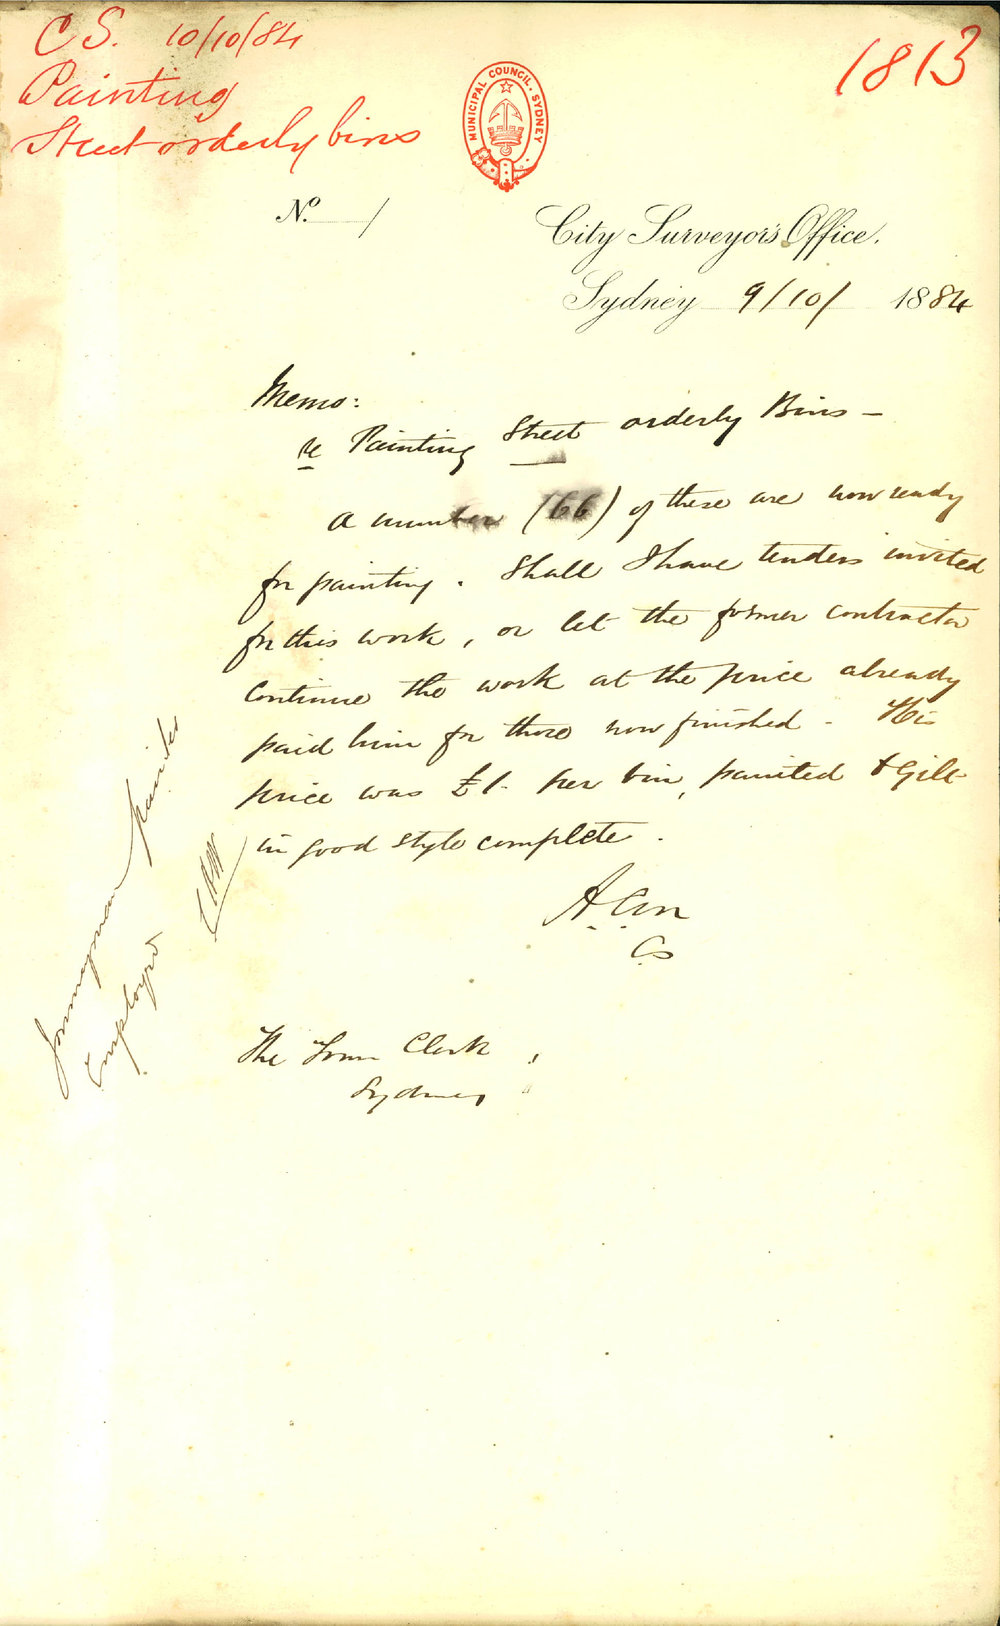 CS. 10/10/84
Painting
Street orderly bins
1813
MUNICIPAL COUNCIL. SYDNEY
No. /
City Surveyor's Office.
Sydney 9/10/ 1884
Memo:
re Painting Street orderly Bins –
A number (66) of these are now ready
for painting. Shall I have tenders invited
for this work, or let the former contractor
continue the work at the price already
paid him for those now finished - His
price was £1- per bin, painted & Gilt
in good style complete.
A.C.M
CS
The Town Clerk,
Sydney
Journeyman painter
Employed